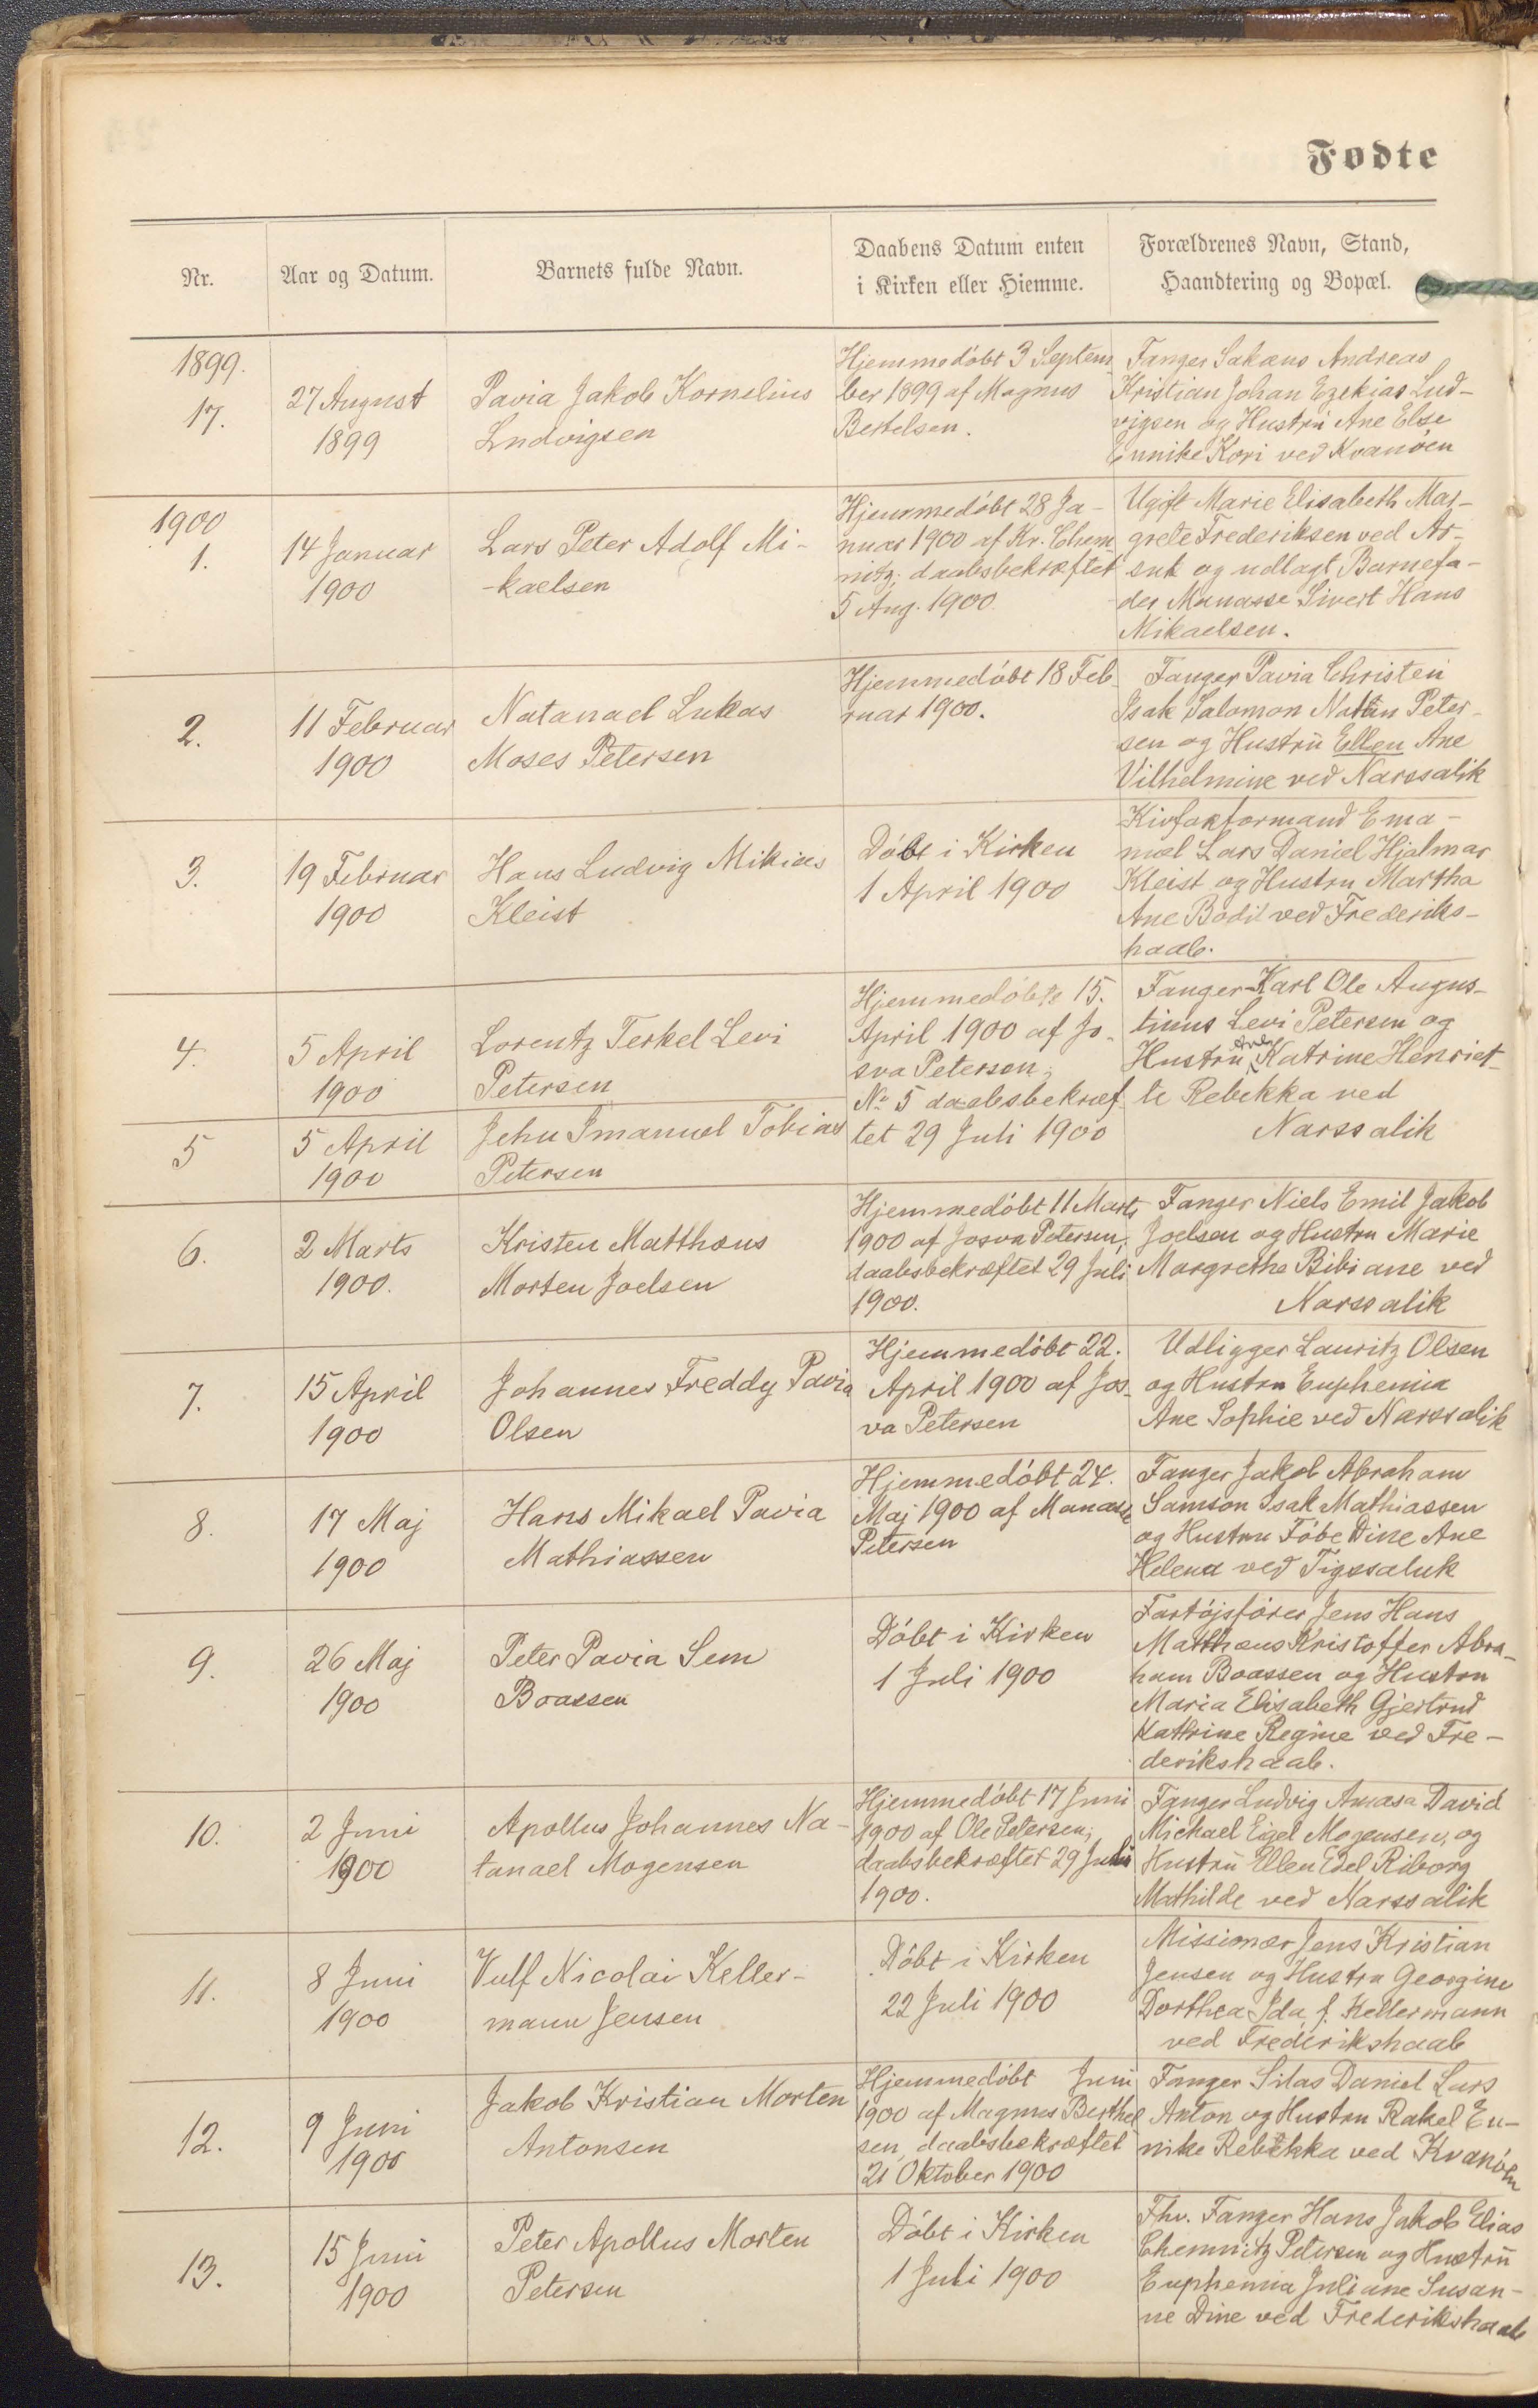 Fødte
Nr.
Aar og Datum.
Barnets fulde Navn.
Daabens Datum enten
i Kirken eller Hiemme.
Forældrenes Navn, Stand,
Haandtering og Bopæl.
1899.
17.
27 August
1899
Pavia Jakob Kornelius
Ludvigsen
Hjemmedöbt 3 Septem
ber 1899 af Magnus
Bertelsen.
Fanger Sakæus Andreas
Kristian Johan Ezekias Lud-
vigsen og Hustru Ane Else
Eunike Kori ved Kvanöen
1900
1.
14 Januar
1900
Lars Peter Adolf Mi-
-kaelsen
Hjemmedöbt 28 Ja-
nuar 1900 af Kr. Chem
nitz; daabsbekræftet
5 Aug. 1900
Ugift Marie Elisabeth Mar-
grete Frederiksen ved Ar-
suk og udlagt Barnefa-
der Manasse Sivert Hans
Mikaelsen.
2.
11 Februar
1900
Natanael Lukas
Moses Petersen
Hjemmedöbt 18 Feb
ruar 1900.
Fanger Pavia Christen
Isak Salomon Natan Peter-
sen og Hustru Ellen Ane
Vilhelmine ved Narssalik
3.
19 Februar
1900
Hans Ludvig Mikias
Kleist
Döbt i Kirken
1 April 1900
Kivfakformand Ema-
nuel Lars Daniel Hjalmar
Kleist og Hustru Martha
Ane Bodil ved Frederiks-
haab.
4.
5 April
1900
Lorentz Terkel Levi
Petersen
Hjemmedöbte 15.
April 1900 af Jo-
sva Petersen;
No 5 daabsbekræf
tet 29 Juli 1900
Fanger Karl Ole Augus-
tinus Levi Petersen og
Hustru Ane Katrine Henriet-
te Rebekka ved
Narssalik
5
5 April
1900
Jehu Imanuel Tobias
Petersen
6.
2 Marts
1900.
Kristen Matthæus
Morten Joelsen
Hjemmedöbt 11 Marts
1900 af Josva Petersen;
daabsbekræftet 29 Juli
1900.
Fanger Niels Emil Jakob
Joelsen og Hustru Marie
Margrethe Bibiane ved
Narssalik
7.
15 April
1900
Johannes Freddy Pavia
Olsen
Hjemmedöbt 22.
April 1900 af Jos-
va Petersen
Udligger Lauritz Olsen
og Hustru Euphemia
Ane Sophie ved Narssalik
8.
17 Maj
1900
Hans Mikael Pavia
Mathiassen
Hjemmedöbt 24.
Maj 1900 af Manasse
Petersen
Fanger Jakob Abraham
Samson Isak Mathiassen
og Hustru Föbe Dine Ane
Helena ved Tigssaluk
9.
26 Maj
1900
Peter Pavia Sem
Boassen
Döbt i Kirken
1 Juli 1900
Fartöjsförer Jens Hans
Matthæus Kristoffer Abra-
ham Boassen og Hustru
Maria Elisabeth Gjertrud
Kathrine Regine ved Fre-
derikshaab.
10.
2 Juni
1900
Apollus Johannes Na-
tanael Mogensen
Hjemmedöbt 17 Juni
1900 af Ole Petersen;
daabsbekræftet 29 Juli
1900.
Fanger Ludvig Amasa David
Mickael Eigel Mogensen, og
Hustru Ellen Edel Riborg
Mathilde ved Narssalik
11.
8 Juni
1900
Vulf Nicolai Keller-
mann Jensen
Döbt i Kirken
22 Juli 1900
Missionær Jens Kristian
Jensen og Hustru Georgine
Dorthea Ida f. Kellermann
ved Frederikshaab
12.
9 Juni
1900
Jakob Kristian Morten
Antonsen
Hjemmedöbt Juni
1900 af Magnus Berthel
sen, daabsbekræftet
21 Oktober 1900
Fanger Silas Daniel Lars
Anton og Hustru Rakel Eu-
nike Rebekka ved Kvanöen
13.
15 Juni
1900
Peter Apollus Morten
Petersen
Döbt i Kirken
1 Juli 1900
Fhv. Fanger Hans Jakob Elias
Chemnitz Petersen og Hustru
Euphemia Juliane Susan-
ne Dine ved Frederikshaab